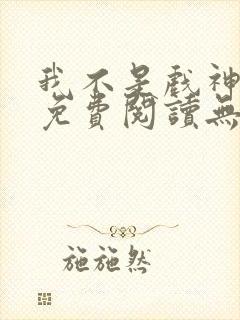 我不是戲神
免費閱讀無
施施然